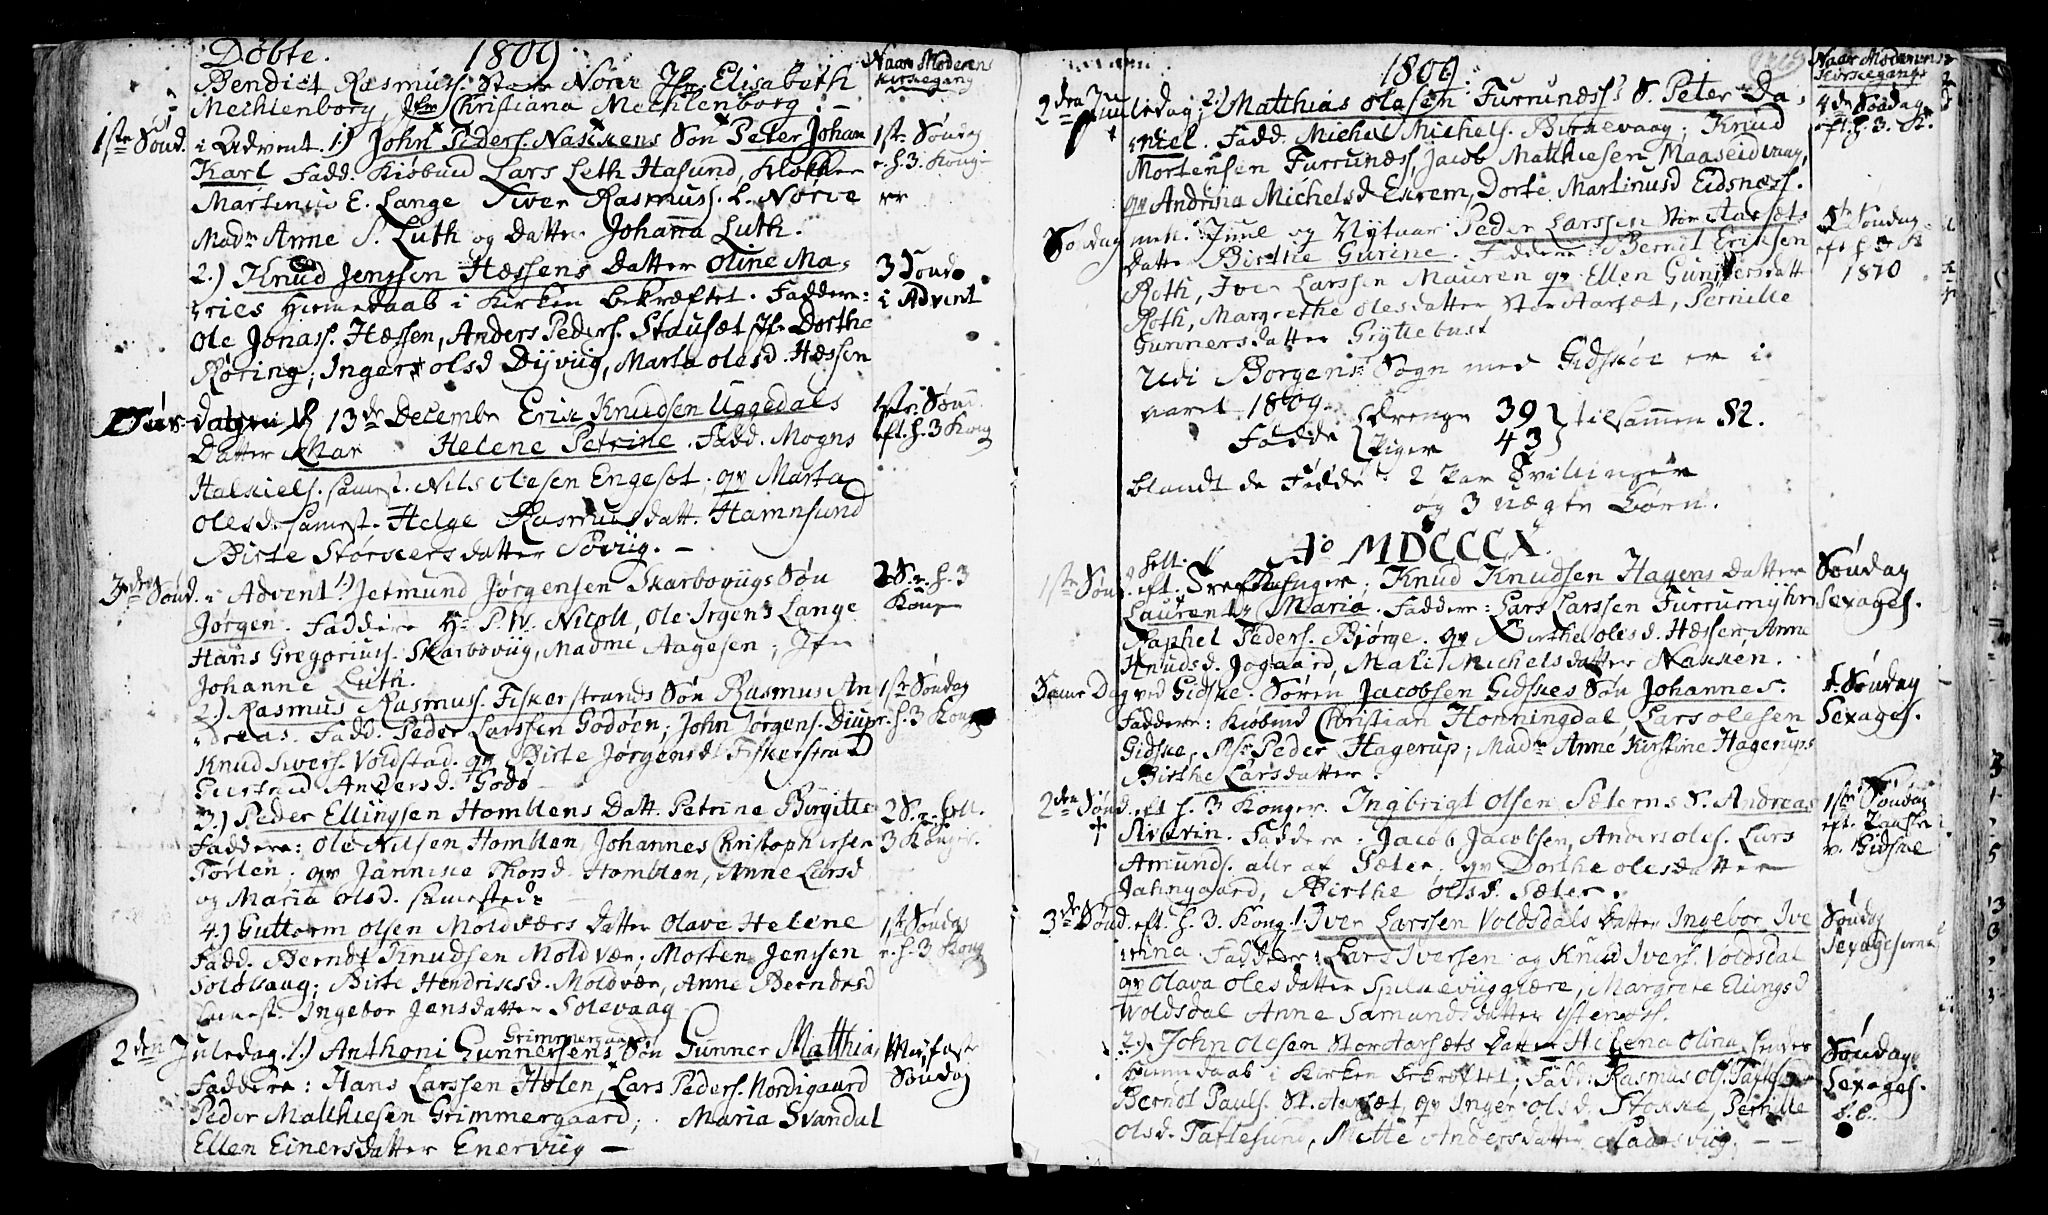 Døbte. 1809.
Naar Moderens
Kirkegang
Bendict Rasmuss. Store Nørve Jfr. Elisabeth
Mechlenborg, Jfr Christiana Mechlenborg. —
1ste Sønd. i Advent. 1.) John Peders. Nackens Søn Peter Johan
Karl Fadd. Kiøbmd Lars Leth Hasund, Klokker
Martinus E. Lange Iver Rasmuss. L. Nørve
Madm Anne S. Luth og Datter Johanna Luth.
1ste Søndag
e. h. 3. Kong-
er
2.) Knud Jenssen Hessens Datter Oline Ma-
ries Hiemedaab i Kirken bekræftet. Faddere:
Ole Jonass. Hessen, Anders Peders. Stauset Jfr Dorthe
Røring; Inger Olsd Dyviig, Marta Olesd. Hessen
3 Sønd.
i Advent
13de Decembr Erik Knudsen Uggedals
Datter Helene Petrine. Fadd. Mogns
Halkiels. samest. Nils Olesen Engeset; qv Marta
Olesd. samest. Helge Rasmusdatt. Hamnsund
Birte Størkersdatter Søviig. —
1ste Sønd.
eft. h. 3 Kong
3de Sønd. i Advent 1.) Jetmund Jørgensen Skarboviigs Søn
Jørgen. Faddere Hr P. W. Nicoll, Ole Irgens Lange
Hans Gregoriuss. Skarboviig, Madme Aagesen; Jfr
Johanne Luth.
2 S. e. h. 3
Konge
2.) Rasmus Rasmuss. Fiskerstrands Søn Rasmus An
dreas. Fadd. Peder Larssen Godøen; John Jørgens. Diup
Knud Ivers. Voldstad. qv Birte Jørgensd Fiskerstrand
Giertrud Andersd. Godø
1ste Søndag
e. h. 3 Kong
3.) Peder Ellingsen Homblens Datt. Petrine Birgitte
Faddere: Ole Nilsen Homblen, Johannes Christophersen
Tørlen; qv Jannike Thorsd. Homblen, Anne Larsd
og Maria Olsd. samesteds
2 S. e. hell.
3 Konger.
4.) Guttorm Olsen Moldværs Datter Olave Helene
Fadd. Berndt Knudsen Moldvær; Morten Jensen
Solevaag; Birte Hendriksd. Moldvær, Anne Berndtsd
samest. Ingebor Jensdatter Solevaag
1ste Søndag
e. h. 3 Kong
2den Juledag. 1.) Anthoni Gunnersens Grimmergaard Søn Gunner Matthias
Faddere: Hans Larssen Holen, Lars Peders. Nordigaard
Peder Matthiesen Grimmergaard; Maria Svandal
Ellen Einersdatter Enerviig —
Søndag
1809.
Naar Moderens
Kirkegang
2den Juledag; 2.) Matthias Olesen Furrunæss's S. Peter Da-
niel. Fadd. Michel Michels. Birkevaag; Knud
Mortensen Furrunæss, Jacob Matthiesen Maaseidvaag,
qv Andrina Michelsd Ekrem, Dorte Martinusd Eidsnæss.
4de Søndag
eft. h. 3. K.
Søndag mell. Juul og Nytaar Peder Larssen Stor Aarsæts
Datter Birthe Gurine. Faddere: Berndt Eriksen
Roth, Iver Larssen Mauren qv Ellen Gunnersdatt
Roth, Margrethe Olesdatter Stor Aarsæt, Pernille
Gunnersdatter Gryttebust
Søndag
eft h 3 K
1810
Udi Borgens Sogn med Gidskøe er i
aaret 1809.
Fødde Drenge 39 tilsammen 82.
Piger 43
blandt de Fødde 2 Par Tvillinger
og 3 uægte Børn.
Ao MDCCCX.
1ste Sønd. eft. Trefkonger; Knud Knudsen Hagens Datter
Laurentz Maria. Faddere: Lars Larssen Furrumyhr
Raphel Peders. Biørge. qv Birthe Olesd. Hessen Anne
Knudsd. Jogaard, Mali Michelsdatter Nakken.
Søndag
Sexages.
Same Dag ved Gidske. Søren Jacobsen Gidskes Søn Johannes.
Faddere: Kiøbmd Christian Honningdal, Lars Olesen
Gidske, Peder Hagerup; Madm Anne Kirstine Hagerups
Birthe Larsdatter.
Søndag
Sexages.
2den Sønd. eft h. 3 Konger. Ingbrigt Olsen Sæterns S. Andreas
Severin. Faddere: Jacob Jacobsen, Anders Oles. Lars
Amunds. alle af Sæter, qv Dorthe Olesdatter
Jahngaard, Birthe Olsd. Sæter.
1ste Søndag
eft. Paaske
v. Gidske
3de Sønd. eft. h. 3. Kong. 1. Iver Larssen Voldsdals Datter Ingebor Ive
rina Faddere: Lars Iversen og Knud Ivers. Voldsdal
qv Olava Olesdatter Spilkeviig, Margrete Elingsd
Woldsdal Anne Samundsdatter Ystenæss.
Søndag
Sexagesima
2.) John Olesen Storaarsæts Datter Helena Olina hendes
hiemedaab i Kirken bekræftet; Fadd: Rasmus Ols. Tafte
Berndt Pauls. St. Aarsæt, qv Inger Olsd. Stokke, Pernille
Olsd. Taftesund, Mette Andersdatter
Søndag
Sexages.